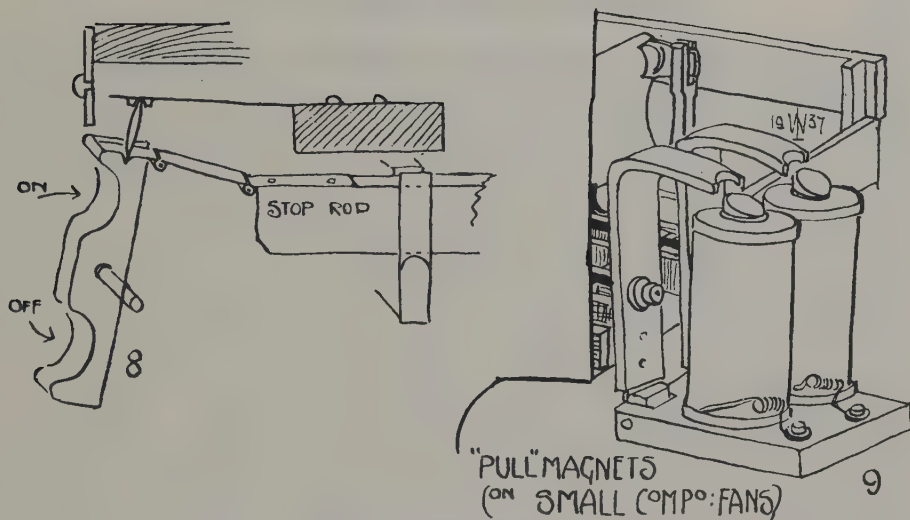 ON
OFF
8
STOP ROD
19 W 37
"PULL" MAGNETS
(ON SMALL COMPO: FANS)
9